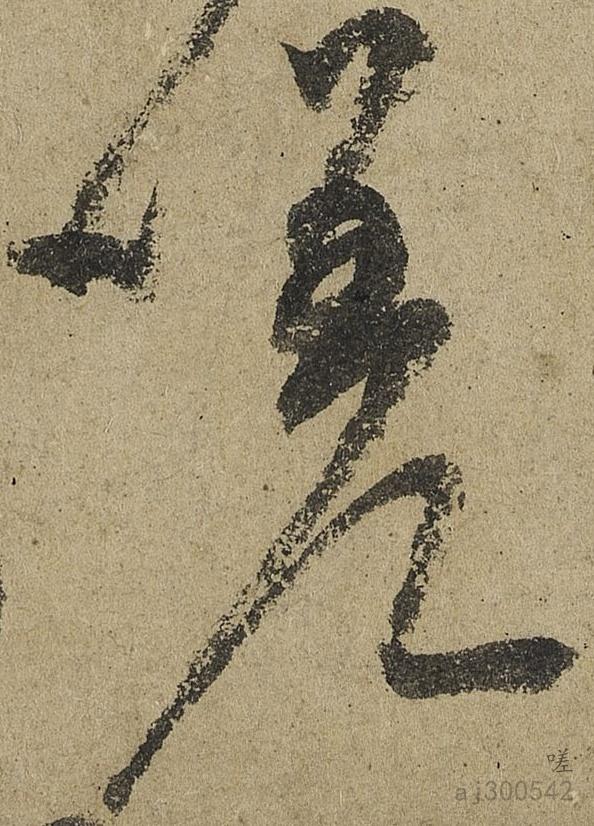 嗟
嗟
aj300542